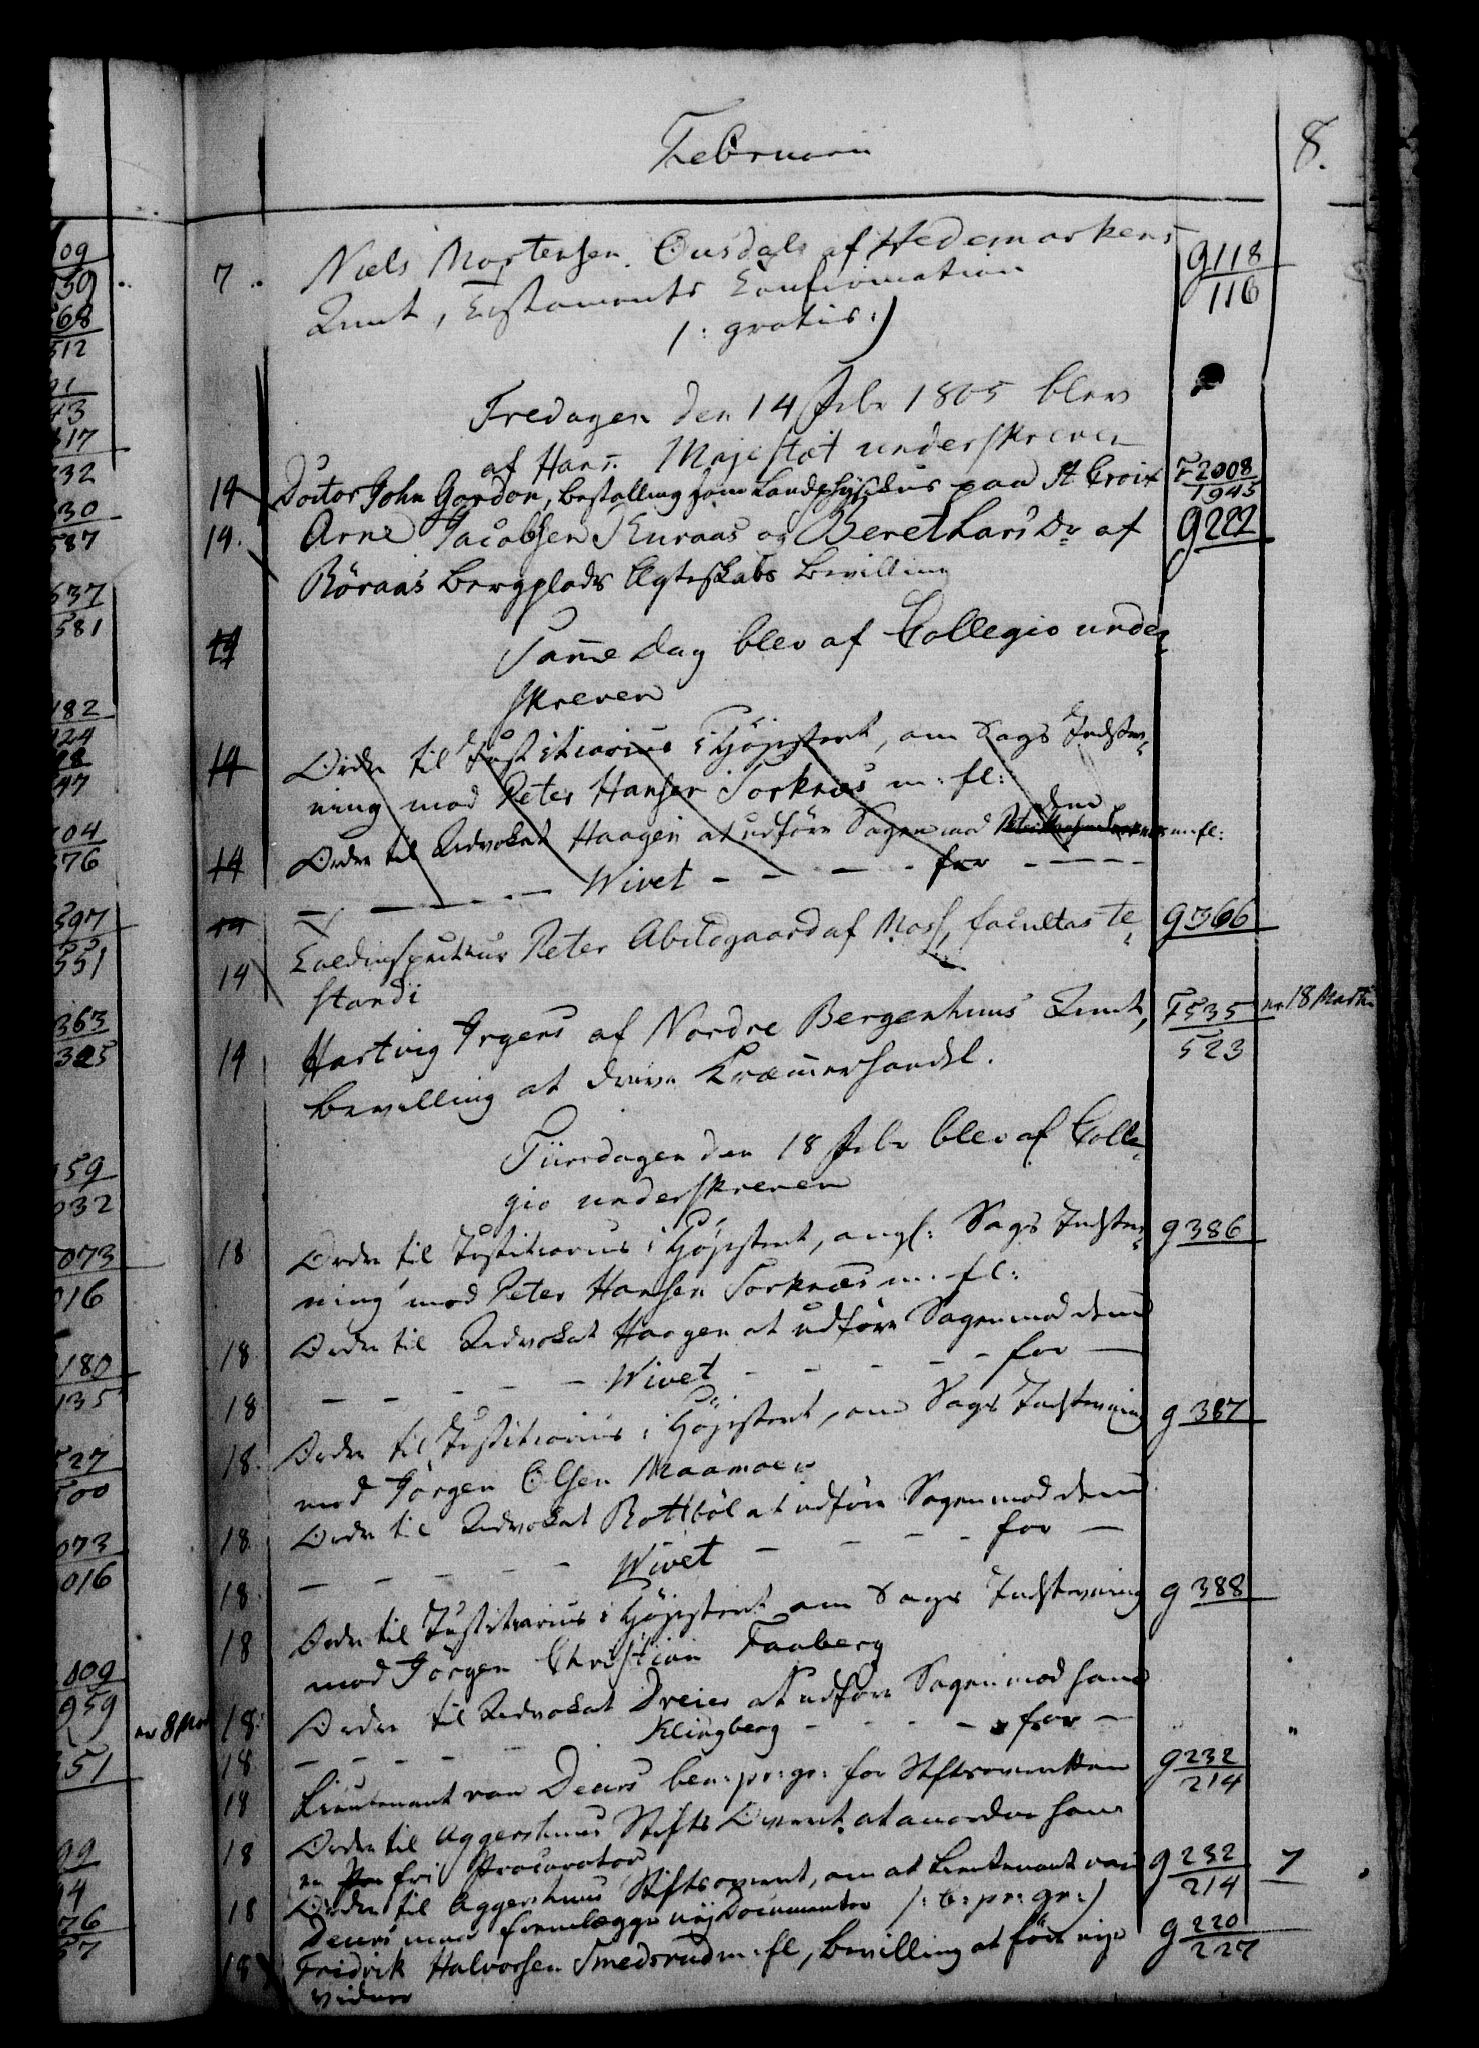 Februari
8.
7. Niels Mortensen Ousdals af Hedemarkens g 118/116
Amt, Testaments Confirmation
/: gratis :/
Fredagen den 14 Febr 1805 blev
af Hans Majestæt underskreven
14 Doctor John Gordon, Bestalling som Landphysikus paa St Croix F 2008/1945
14. Arne Jacobsen Enraas og Beret Lars Dr af g 222
Röraas Bergplads Ægteskabs Bevilling
14 Samme Dag blev af Collegio under
skreven
14 Ordre til Justitiarius i Höjesteret, om Sags Indstev
ning mod Peter Hansen Sorknæs m: fl:
14 Ordre til Advokat Haagen at udföre Sagen mod dem m: fl:
14 — — — Wivet - - - - for - - - -
14 Toldinspecteur Peter Abildgaard af Moss, facultas te g 366
standi
14 Hartvig Irgens af Nordre Bergenhuus Amt, F 535/523 18 Martii
Bevilling at drive Kræmerhandel.
Tiirsdagen den 18 Febr blev af Colle
gio underskreven
18 Ordre til Justitiarius i Höjesteret, angl: Sags Indstev g 386
ning mod Peter Hansen Sorknæs m: fl:
18 Ordre til Advokat Haagen at udföre Sagen mod dem
18 — — — — Wivet - - - - for —
18. Ordre til Justitiarius i Höjesteret, om Sags Indstevning g 387
mod Jörgen Olsen Maamoen
18 Ordre til Advokat Rottböl at udföre Sagen mod dem
18. — — — — Wivet - - - - for —
18 Ordre til Justitiarius i Höjesteret om Sags Indstevning g 388
mod Jörgen Christian Faaberg
18. Ordre til Advokat Dreier at udföre Sagen mod ham
18 — — — — Klingberg - - - - for —
18 Lieutenant von Deurs ben: pr: gr: for Stiftsovrretten g 232/214
18 Ordre til Aggershuus Stifts Overret at anordne ham
en fri Procurator
18 Ordre til Aggershuus Stiftsoverret, om at Lieutenant von g 232/214 7
Deurs maa fremlægge nÿe Documenter /: b: pr: gr: /
18 Fridrik Halvorsen Smedsrud m: fl, Bevilling at före nye g 220/227
Vidner